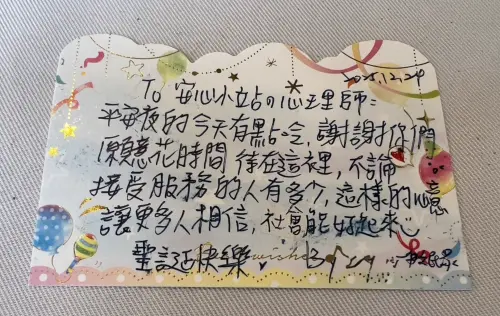 2025.12.24
To 安心小站の心理師:
平安夜的今天有點冷,謝謝你們
願意花時間待在這裡,不論
接受服務的人有多少,這樣的心意
讓更多人相信,社會能好起來
聖誕快樂
wishes